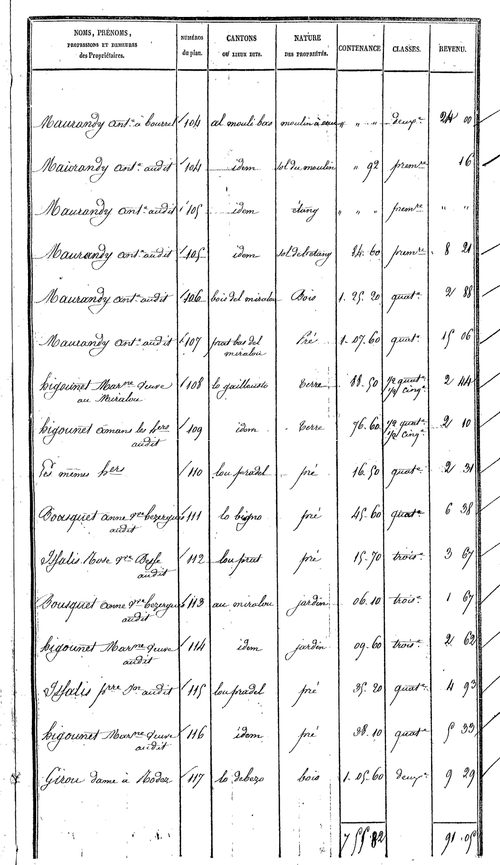 NOMS, PRÉNOMS, PROFESSIONS ET DEMEURES des Propriétaires. NUMÉROS du plan. CANTONS OU LIEUX DITS. NATURE DES PROPRIÉTÉS. CONTENANCE CLASSES. REVENU.
Maurandy ant.e à bourret 104 al mouli bas moulin à eau " " " deux.e 24 00
Maurandy ant.e audit 104 idem sol du moulin " 92 prem.re 16
Maurandy ant.e audit 105 idem étang " " " prem.re " "
Maurandy ant.e audit 105 idem sol de l'etang 24.60 prem.re 8 21
Maurandy ant.e audit 106 bois del miralou Bois 1.25.20 quat.e 2 88
Maurandy ant.e audit 107 prat bas del Pré 1.07.60 quat.e 15 06
miralou
higounet Mar.ne veuve 108 lo gaillouste Terre 88.50 1/2 quat.e 2 44
au Miralou 1/2 cinq.e
higounet amans les h.ers 109 idem Terre 76.60 1/2 quat.e 2 10
audit 1/2 cinq.e
Les mêmes h.ers 110 lou pradel pré 16.50 quat.e 2 31
Bousquet anne v.ve bezergues 111 lo pré 45.60 quat.e 6 38
audit
Issalis Rose v.ve 112 lou prat pré 15.70 trois.e 3 67
audit
Bousquet anne v.ve bezergues 113 au miralou jardin 06.10 trois.e 1 67
audit
higounet Mar.ne veuve 114 idem jardin 09.60 trois.e 2 62
audit
Issalis p.rre audit 115 lou pradel pré 35.20 quat.e 4 93
higounet Mar.ne veuve 116 idem pré 38.10 quat.e 5 33
audit
Girou dame à Rodez 117 lo debezo bois 1.05.60 deux.e 9 29
7 55 82 91 05